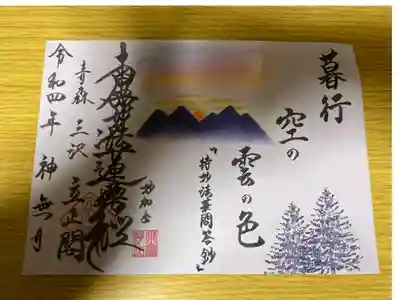 暮行
空の
雲の色
『持妙法華問答鈔』
妙和上
南無妙法蓮華経
青森 三沢 立正閣
令和四年 神無月